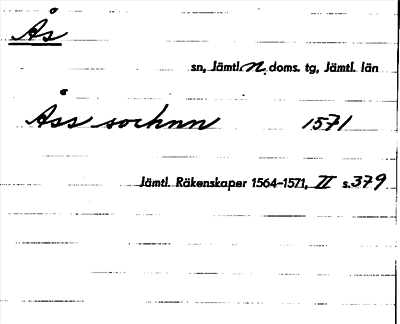 Ås
sn, Jämtl. n. doms. tg, Jämtl. län
Åss sochnn 1571
Jämtl. Räkenskaper 1564-1571, II s. 379